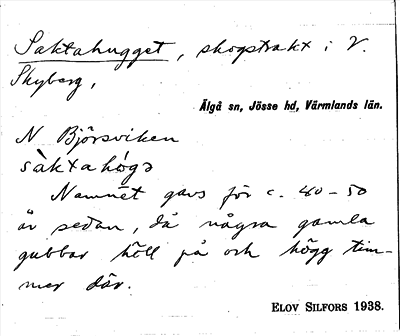 Saktahugget, skogstrakt i V.
Skyberg,
Älgå sn, Jösse hd, Värmlands län.
N Björsviken
sàktahọ́gə
Namnet gavs för c. 40-50
år sedan, då några gamla
gubbar höll på och högg tim-
mer där.
ELOV SILFORS 1938.